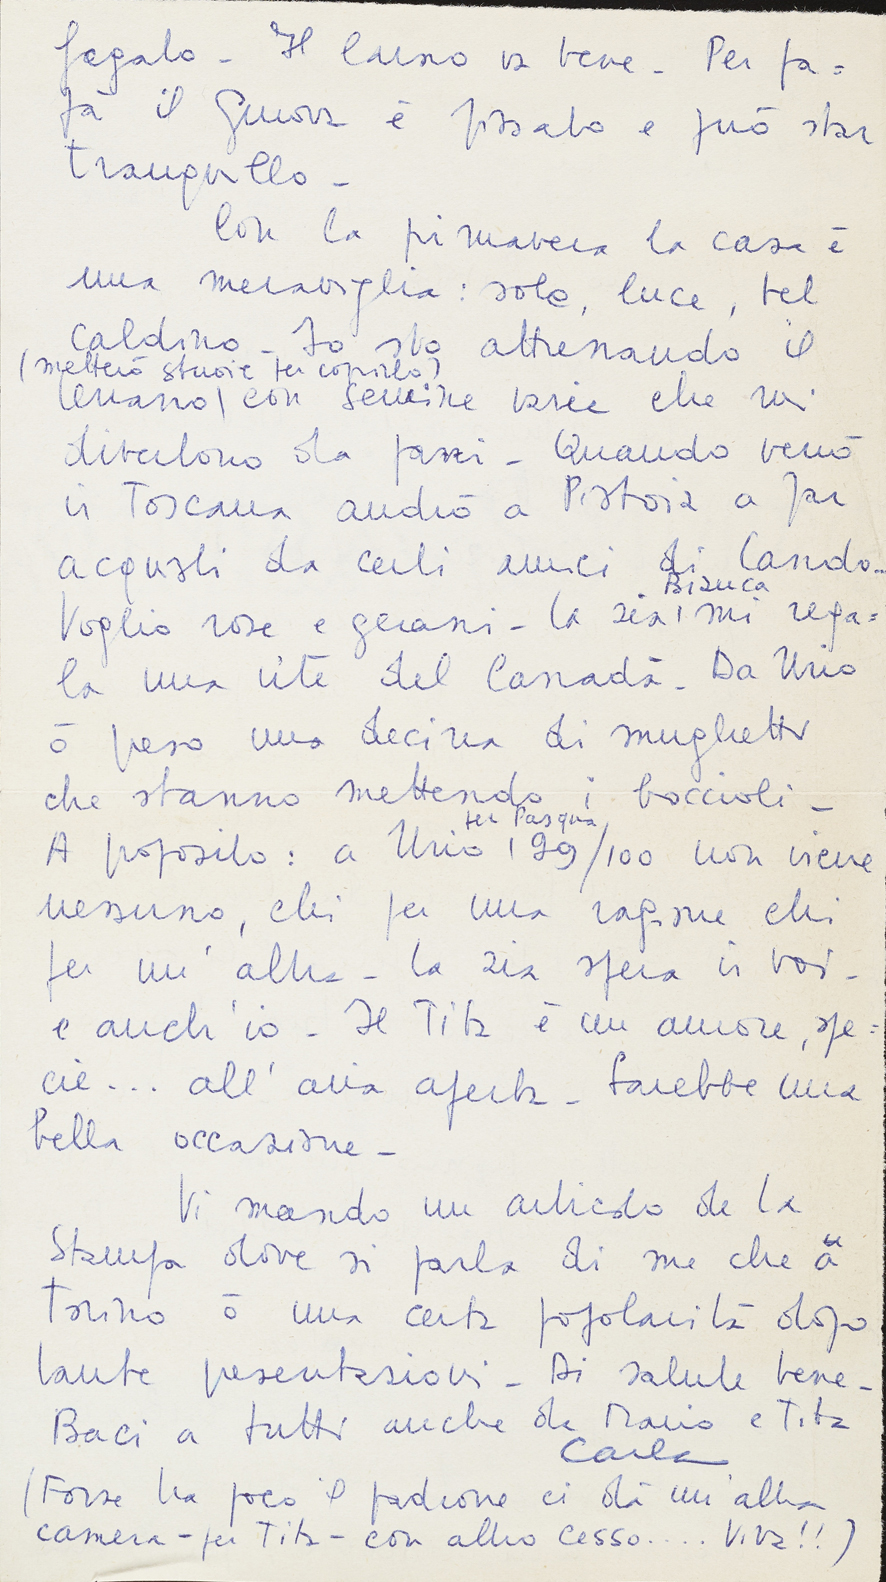 fegato - Il Carso va bene - Per pa=
pà il Genova è passato e può star
tranquillo -
Con la primavera la casa è
una meraviglia: sole, luce, bel
caldino - Io sto attrezzando il
(metterò stuoie per coprirlo)
con semine varie che mi
divertono da pazzi - Quando verrò
in Toscana andrò a Pistoia a far
acquisti da certi amici di
Bianca
Voglio rose e gerani - la zia mi rega=
la una vite del Canadà - Da Urio
ò preso una decina di mughetti
che stanno mettendo i boccioli -
per Pasqua
A proposito: a Urio 99/100 non viene
nessuno, chi per una ragione chi
per un'altra - la zia spera in voi -
e anch'io - Il Tita è un amore, spe=
cie... all'aria aperta - Sarebbe una
bella occasione -
Vi mando un articolo de la
Stampa dove si parla di me che a
Torino ò una certa popolarità dopo
tante presentazioni - Di salute bene -
Baci a tutti anche da Mario e Tita
Carla
(Forse tra poco il padrone ci dà un'altra
camera - per Tita - con altro cesso.... Viva!!)